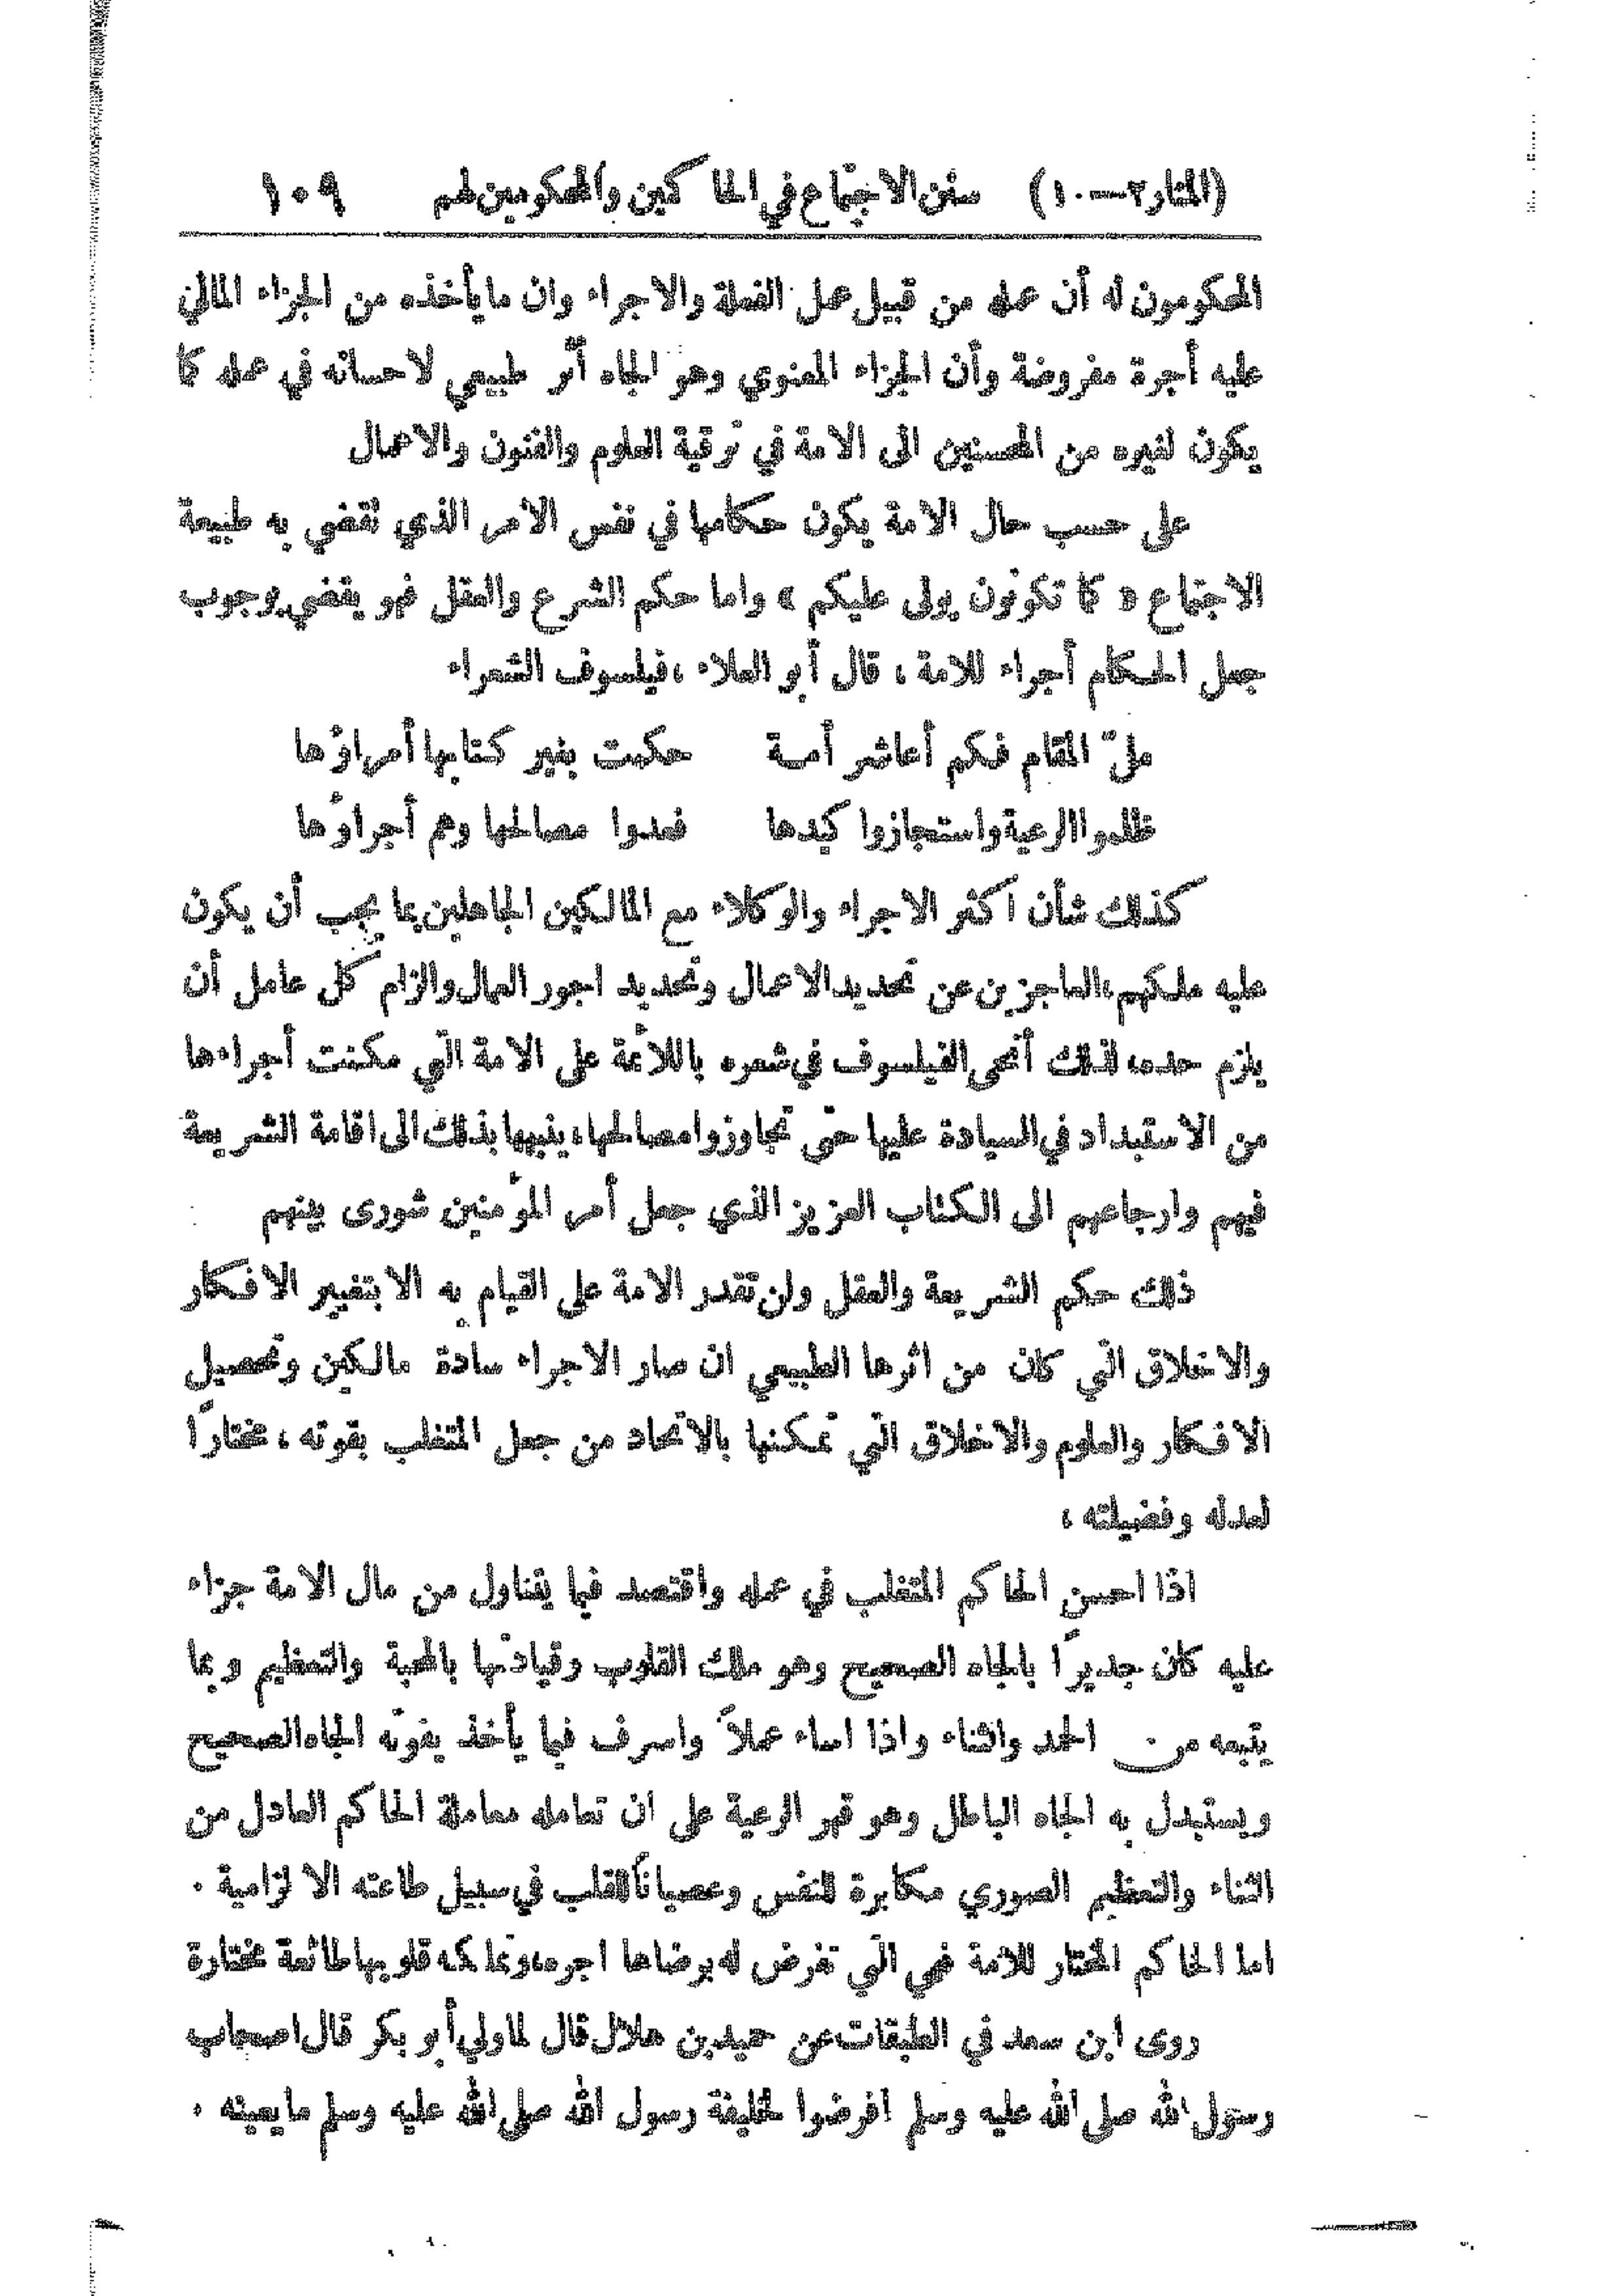 (المنار٢—١٠) سنن الاجتماع في الحاكمين والمحكومين لهم ١٠٩
المحكومون له أن عمله من قبيل عمل الفعلة والاجراء وان ما يأخذه من الجزاء المالي
عليه أجرة مفروضة وأن الجزاء المعنوي وهو الجاه أثر طبيعي لاحسانه في عمله كما
يكون لغيره من المحسنين الى الامة في ترقية العلوم والفنون والاعمال
على حسب حال الامة يكون حكامها في نفس الامر الذي تقضي به طبيعة
الاجتماع « كما تكونون يولى عليكم » واما حكم الشرع والعقل فهو يقضي بوجوب
جعل الحكام أجراء للامة ، قال أبو العلاء ، فيلسوف الشعراء
ملّ المقام فكم أعاشر أمة حكمت بغير كتابها أمراؤها
ظلموا الرعية واستجازوا كيدها فعدوا مصالحها وهم أجراؤها
كذلك شأن أكثر الاجراء والوكلاء مع المالكين الجاهلين بما يجب أن يكون
عليه ملكهم ، العاجزين عن تحديد الاعمال وتحديد اجور العمال والزام كل عامل أن
يلزم حده ، لذلك أنحى الفيلسوف في شعره باللائمة على الامة التي مكنت أجراءها
من الاستبداد في السيادة عليها حتى تجاوزوا مصالحها ، ينبهها بذلك الى اقامة الشريعة
فيهم وارجاعهم الى الكتاب العزيز الذي جعل أمر المؤمنين شورى بينهم
ذلك حكم الشريعة والعقل ولن تقدر الامة على القيام به الا بتغيير الافكار
والاخلاق التي كان من اثرها الطبيعي ان صار الاجراء سادة مالكين وتحصيل
الافكار والعلوم والاخلاق التي تمكنها بالاتحاد من جعل المتغلب بقوته ، مختارًا
لعدله وفضيلته ،
اذا احسن الحاكم المتغلب في عمله واقتصد فيما يتناول من مال الامة جزاء
عليه كان جديرًا بالجاه الصحيح وهو ملك القلوب وقيادتها بالمحبة والتعظيم وبما
يتبعه من الحمد والثناء واذا اساء عملاً واسرف فيما يأخذ يفوته الجاه الصحيح
ويستبدل به الجاه الباطل وهو قهر الرعية على ان تعامله معاملة الحاكم العادل من
الثناء والتعظيم الصوري مكابرة للنفس وعصياناً للقلب في سبيل طاعته الالزامية .
اما الحاكم المختار للامة فهي التي تفرض له برضاها اجره ، وتملكه قلوبها طائعة مختارة
روى ابن سعد في الطبقات عن حميد بن هلال قال لما ولي أبو بكر قال اصحاب
رسول الله صلى الله عليه وسلم افرضوا لخليفة رسول الله صلى الله عليه وسلم ما يعينه .